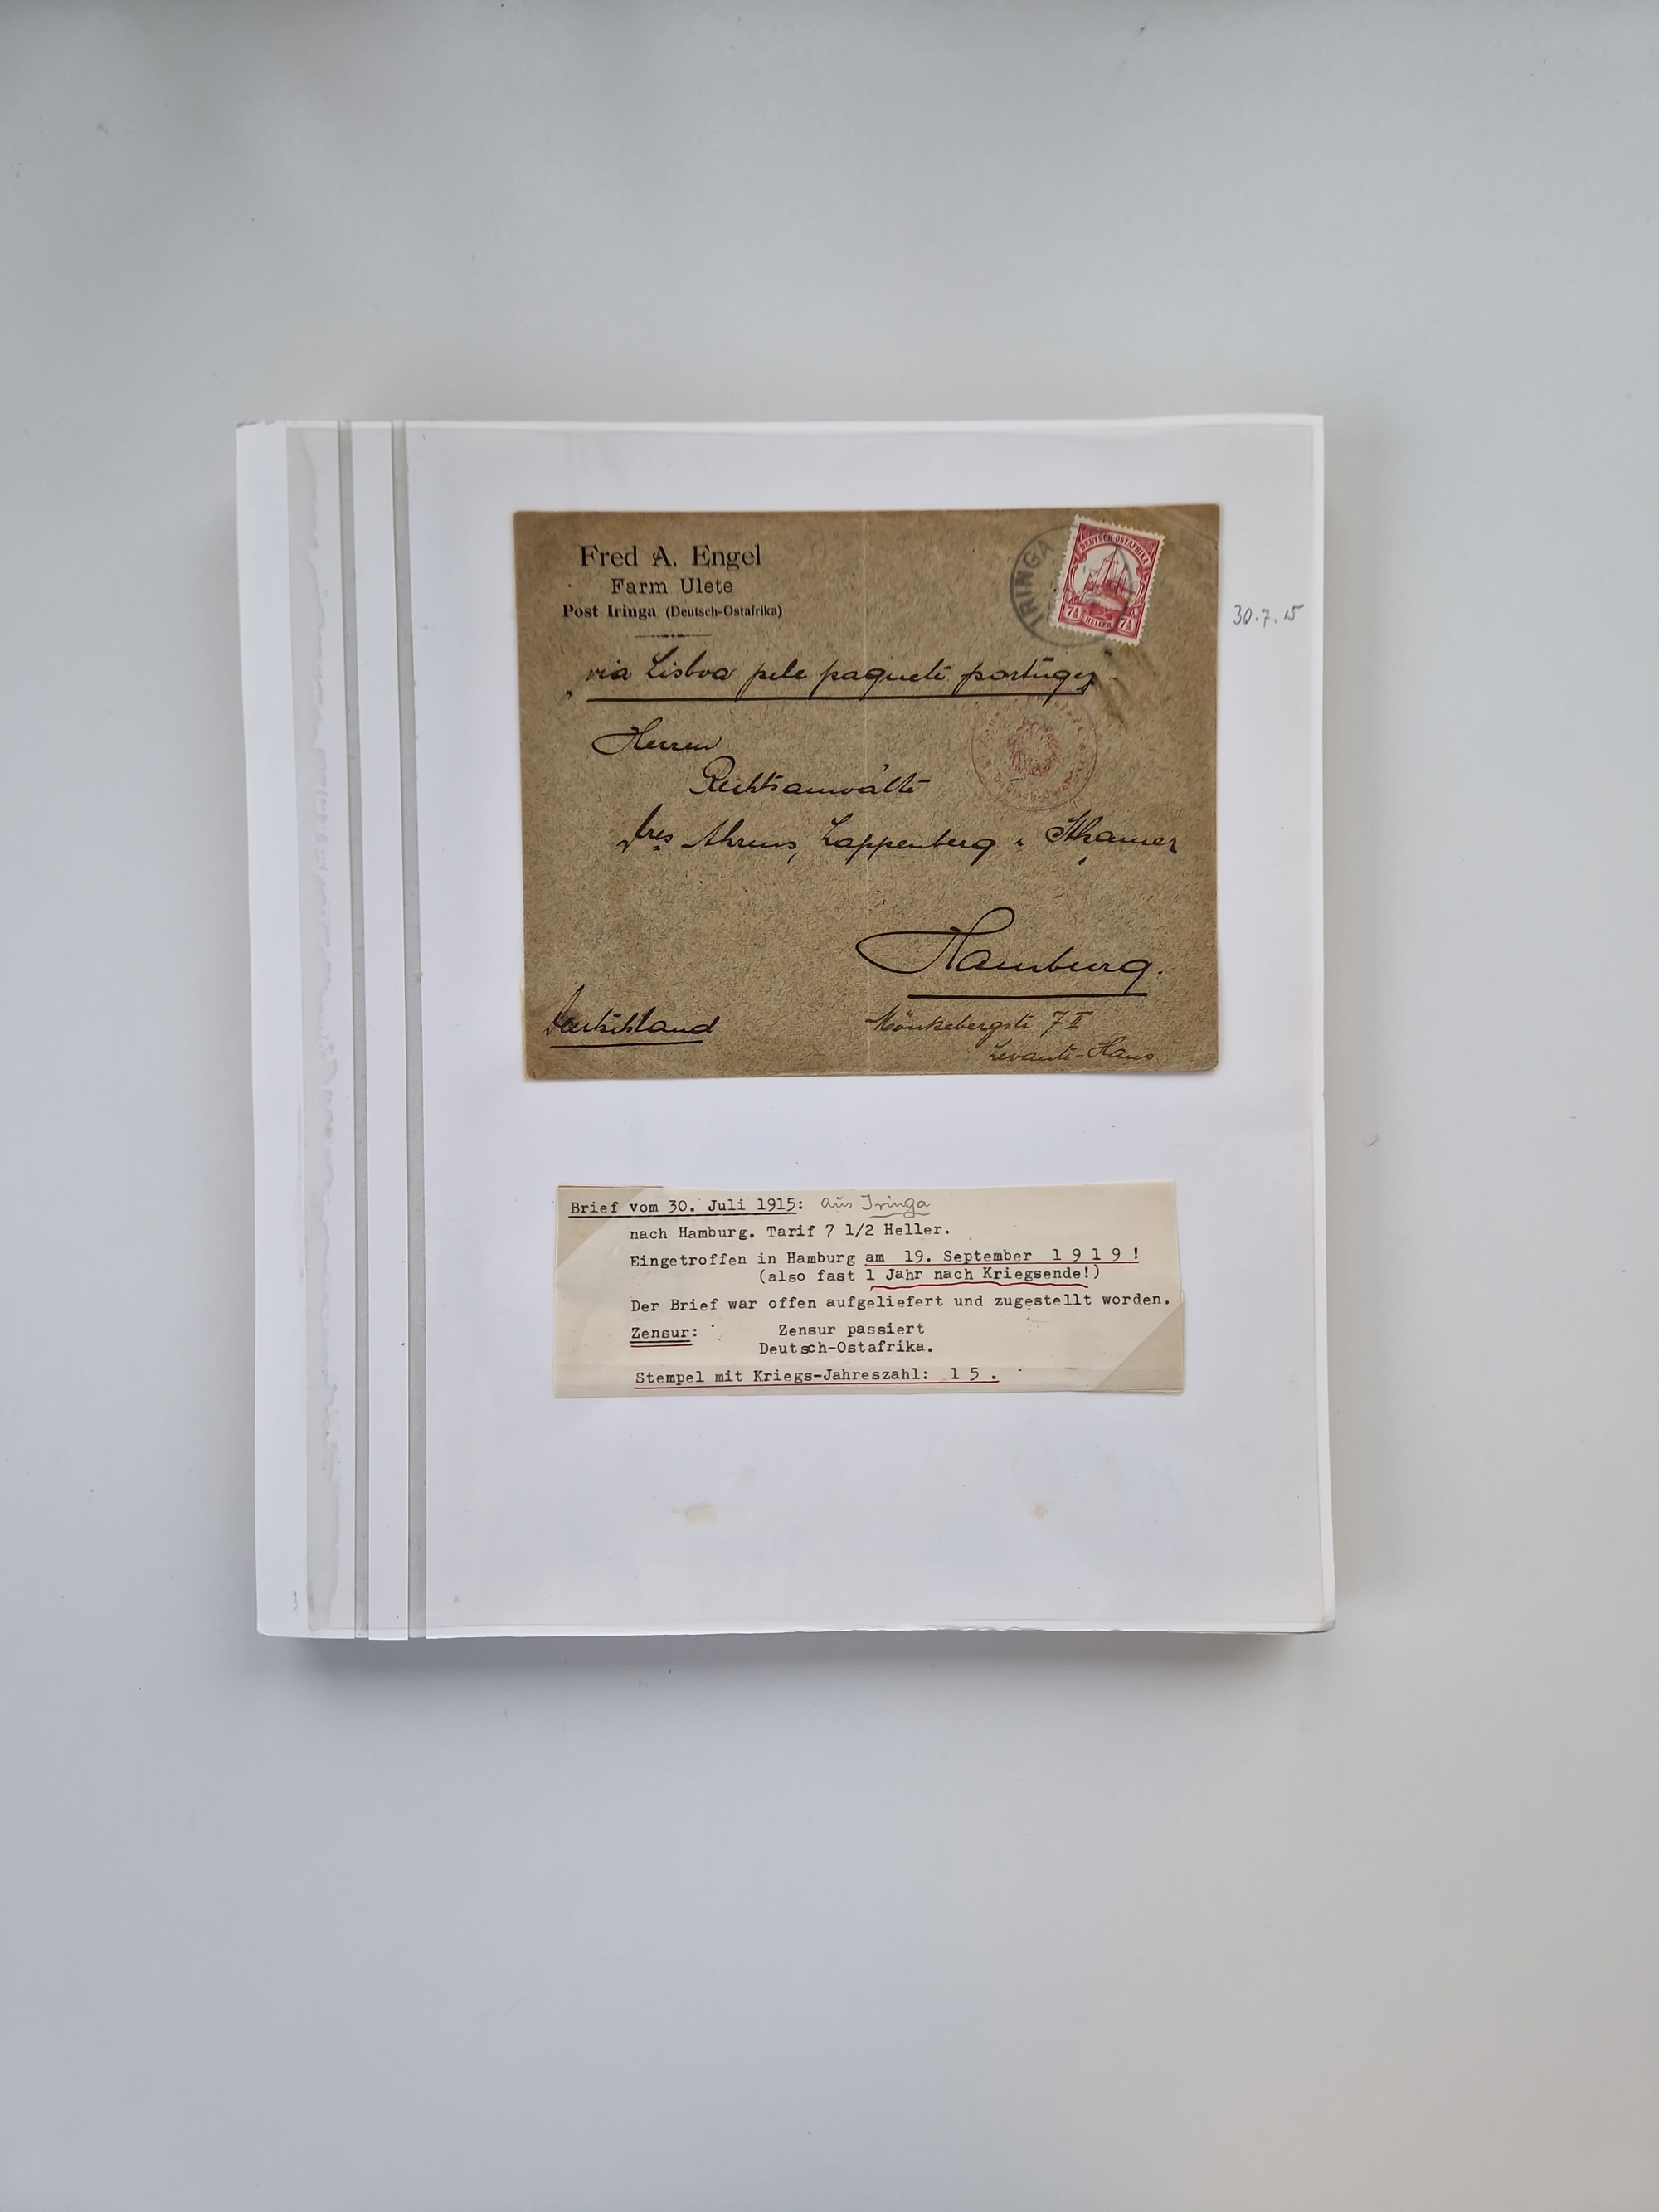 Fred A. Engel
Farm Ulete
Post Iringa (Deutsch-Ostafrika)
IRINGA
DEUTSCH-OSTAFRIKA
7½ HELLER 7½
30.7.15
"via Lisboa pele paquete portugez"
Herren
Rechtsanwälte
Dres Ahrens, Lappenberg & Ithamer
Hamburg.
Deutschland
Mönkebergstr 7 II
Levante-Haus
Brief vom 30. Juli 1915: aus Iringa
nach Hamburg. Tarif 7 1/2 Heller.
Eingetroffen in Hamburg am 19. September 1 9 1 9 !
(also fast 1 Jahr nach Kriegsende!)
Der Brief war offen aufgeliefert und zugestellt worden.
Zensur: Zensur passiert
Deutsch-Ostafrika.
Stempel mit Kriegs-Jahreszahl: 1 5 .